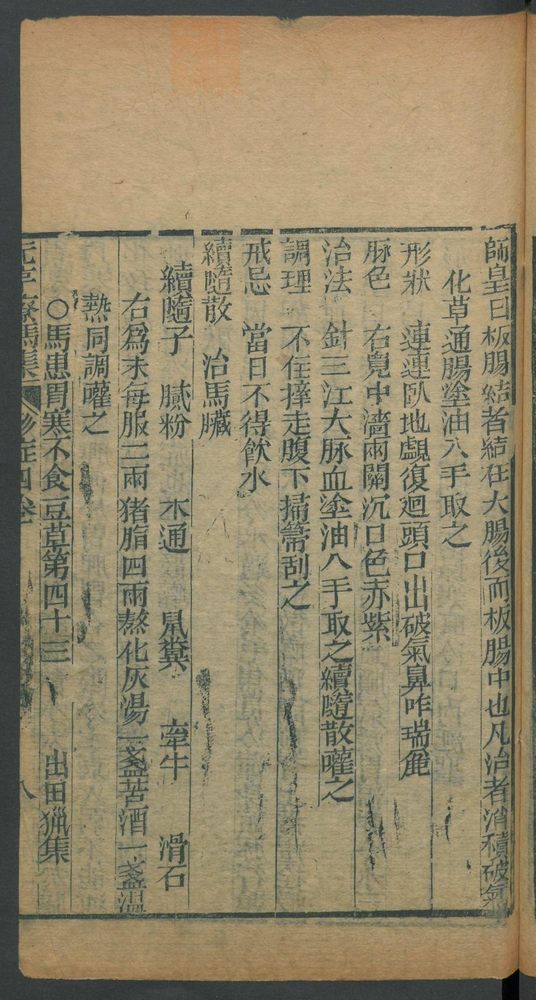 師皇曰板腸結者結在大腸後而板腸中也凡治者消積破氣
化草通腸塗油入手取之
形狀 連連臥地覷復迴頭口出破氣鼻咋瑞麄
脉色 右鳬中濇兩關沉口色赤紫
治法 針三江大脉血塗油入手取之續隨散灌之
調理 不住擡走腹下掃箒刮之
戒忌 當日不得飲水
續隨散 治馬臟
續隨子 膩粉 木通 鼠糞 牽牛 滑石
右爲末每服二兩猪脂四兩熬化灰湯一盞苦酒一盞温
熱同調灌之
○馬患胃寒不食豆草第四十三 出田獵集
元亨療馬集 診症四卷 八